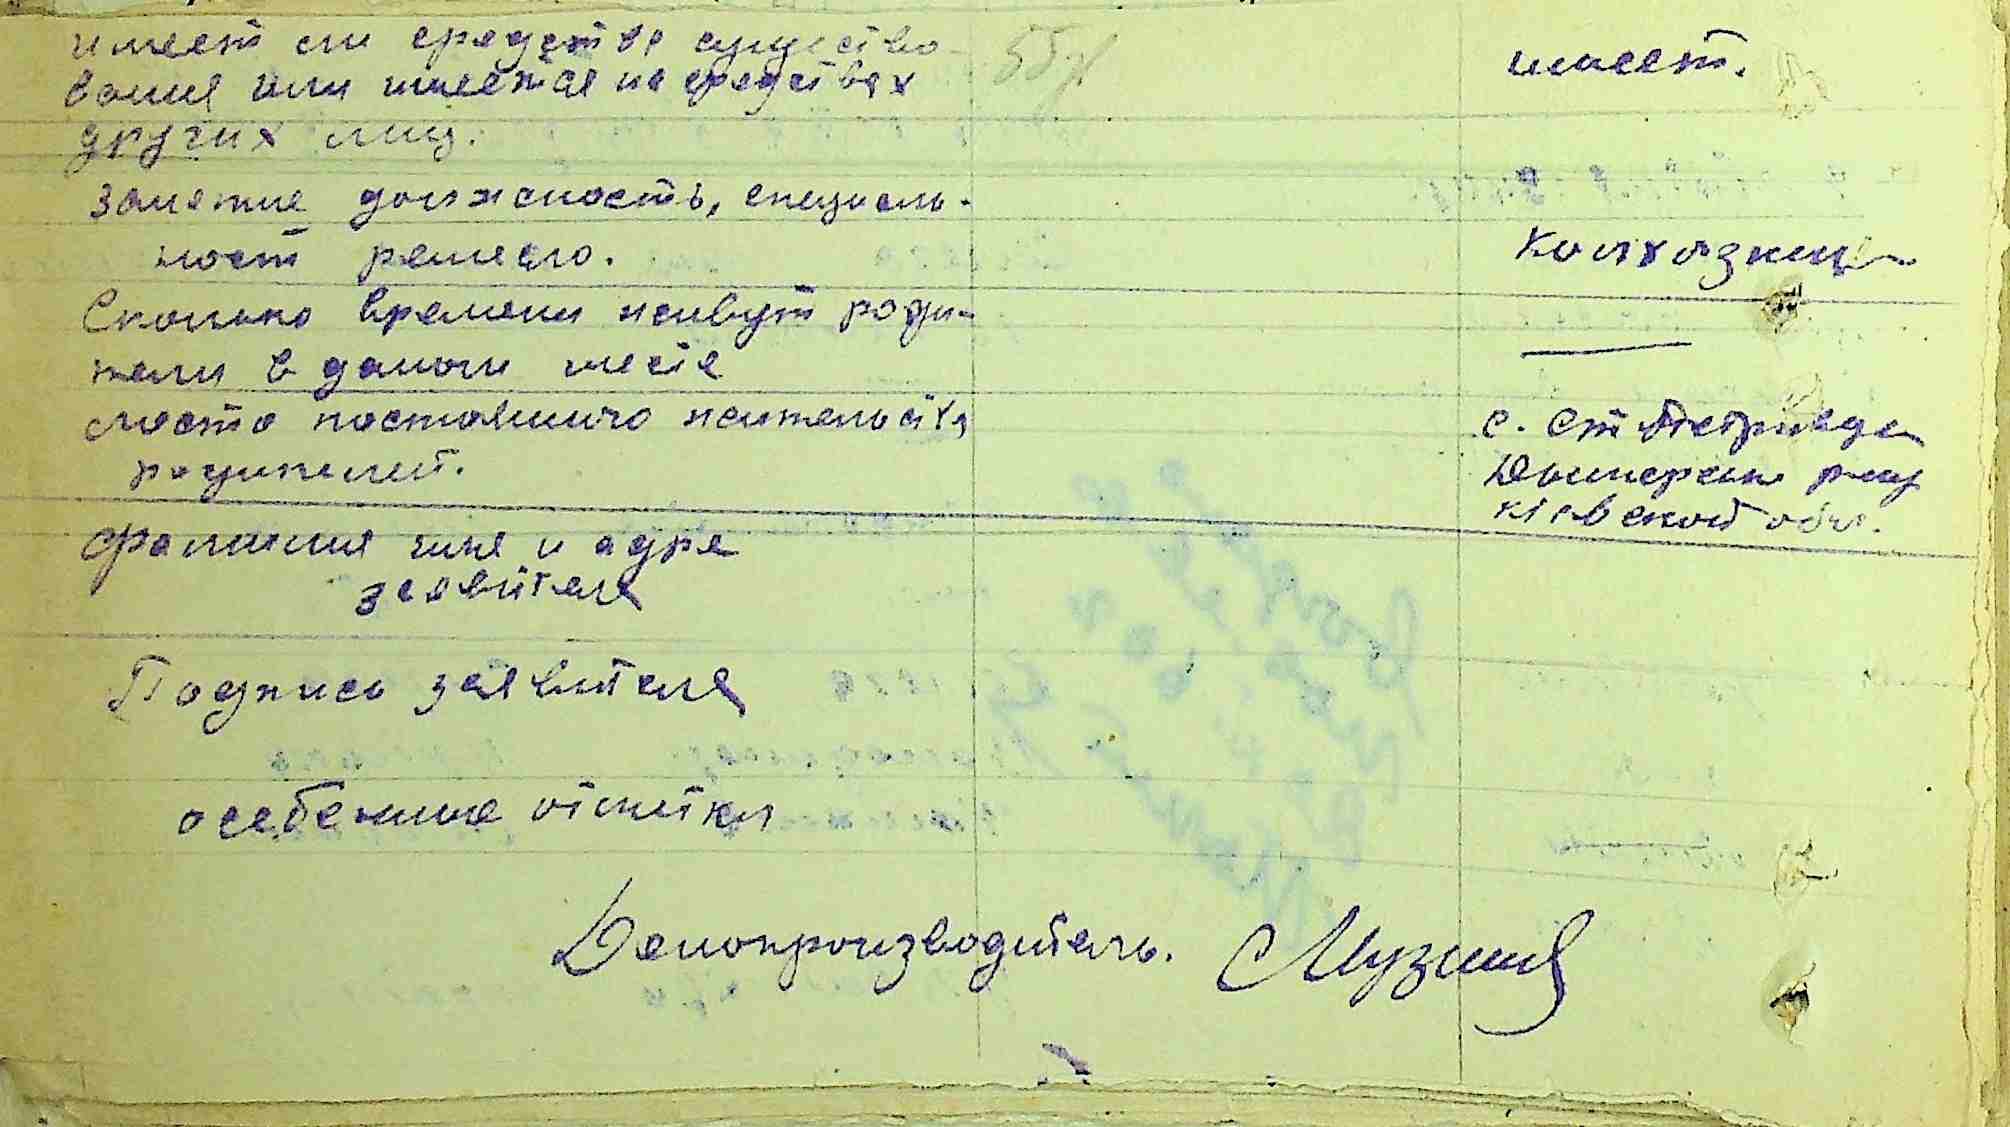 имеет ли средства существо-
вания или имеется на средствах
имеет.
других лиц.
Занятие должность, специаль-
ность ремесло.
колхозниц
Сколько времени живут роди-
тели в данном месте
место постоянного жительства
родителей.
с. Ст Петривци
Дымерськ
Кіевской обл.
Фамилия имя и адре
заявителя
Подпись заявителя
особенные отметки
Делопроизводитель.